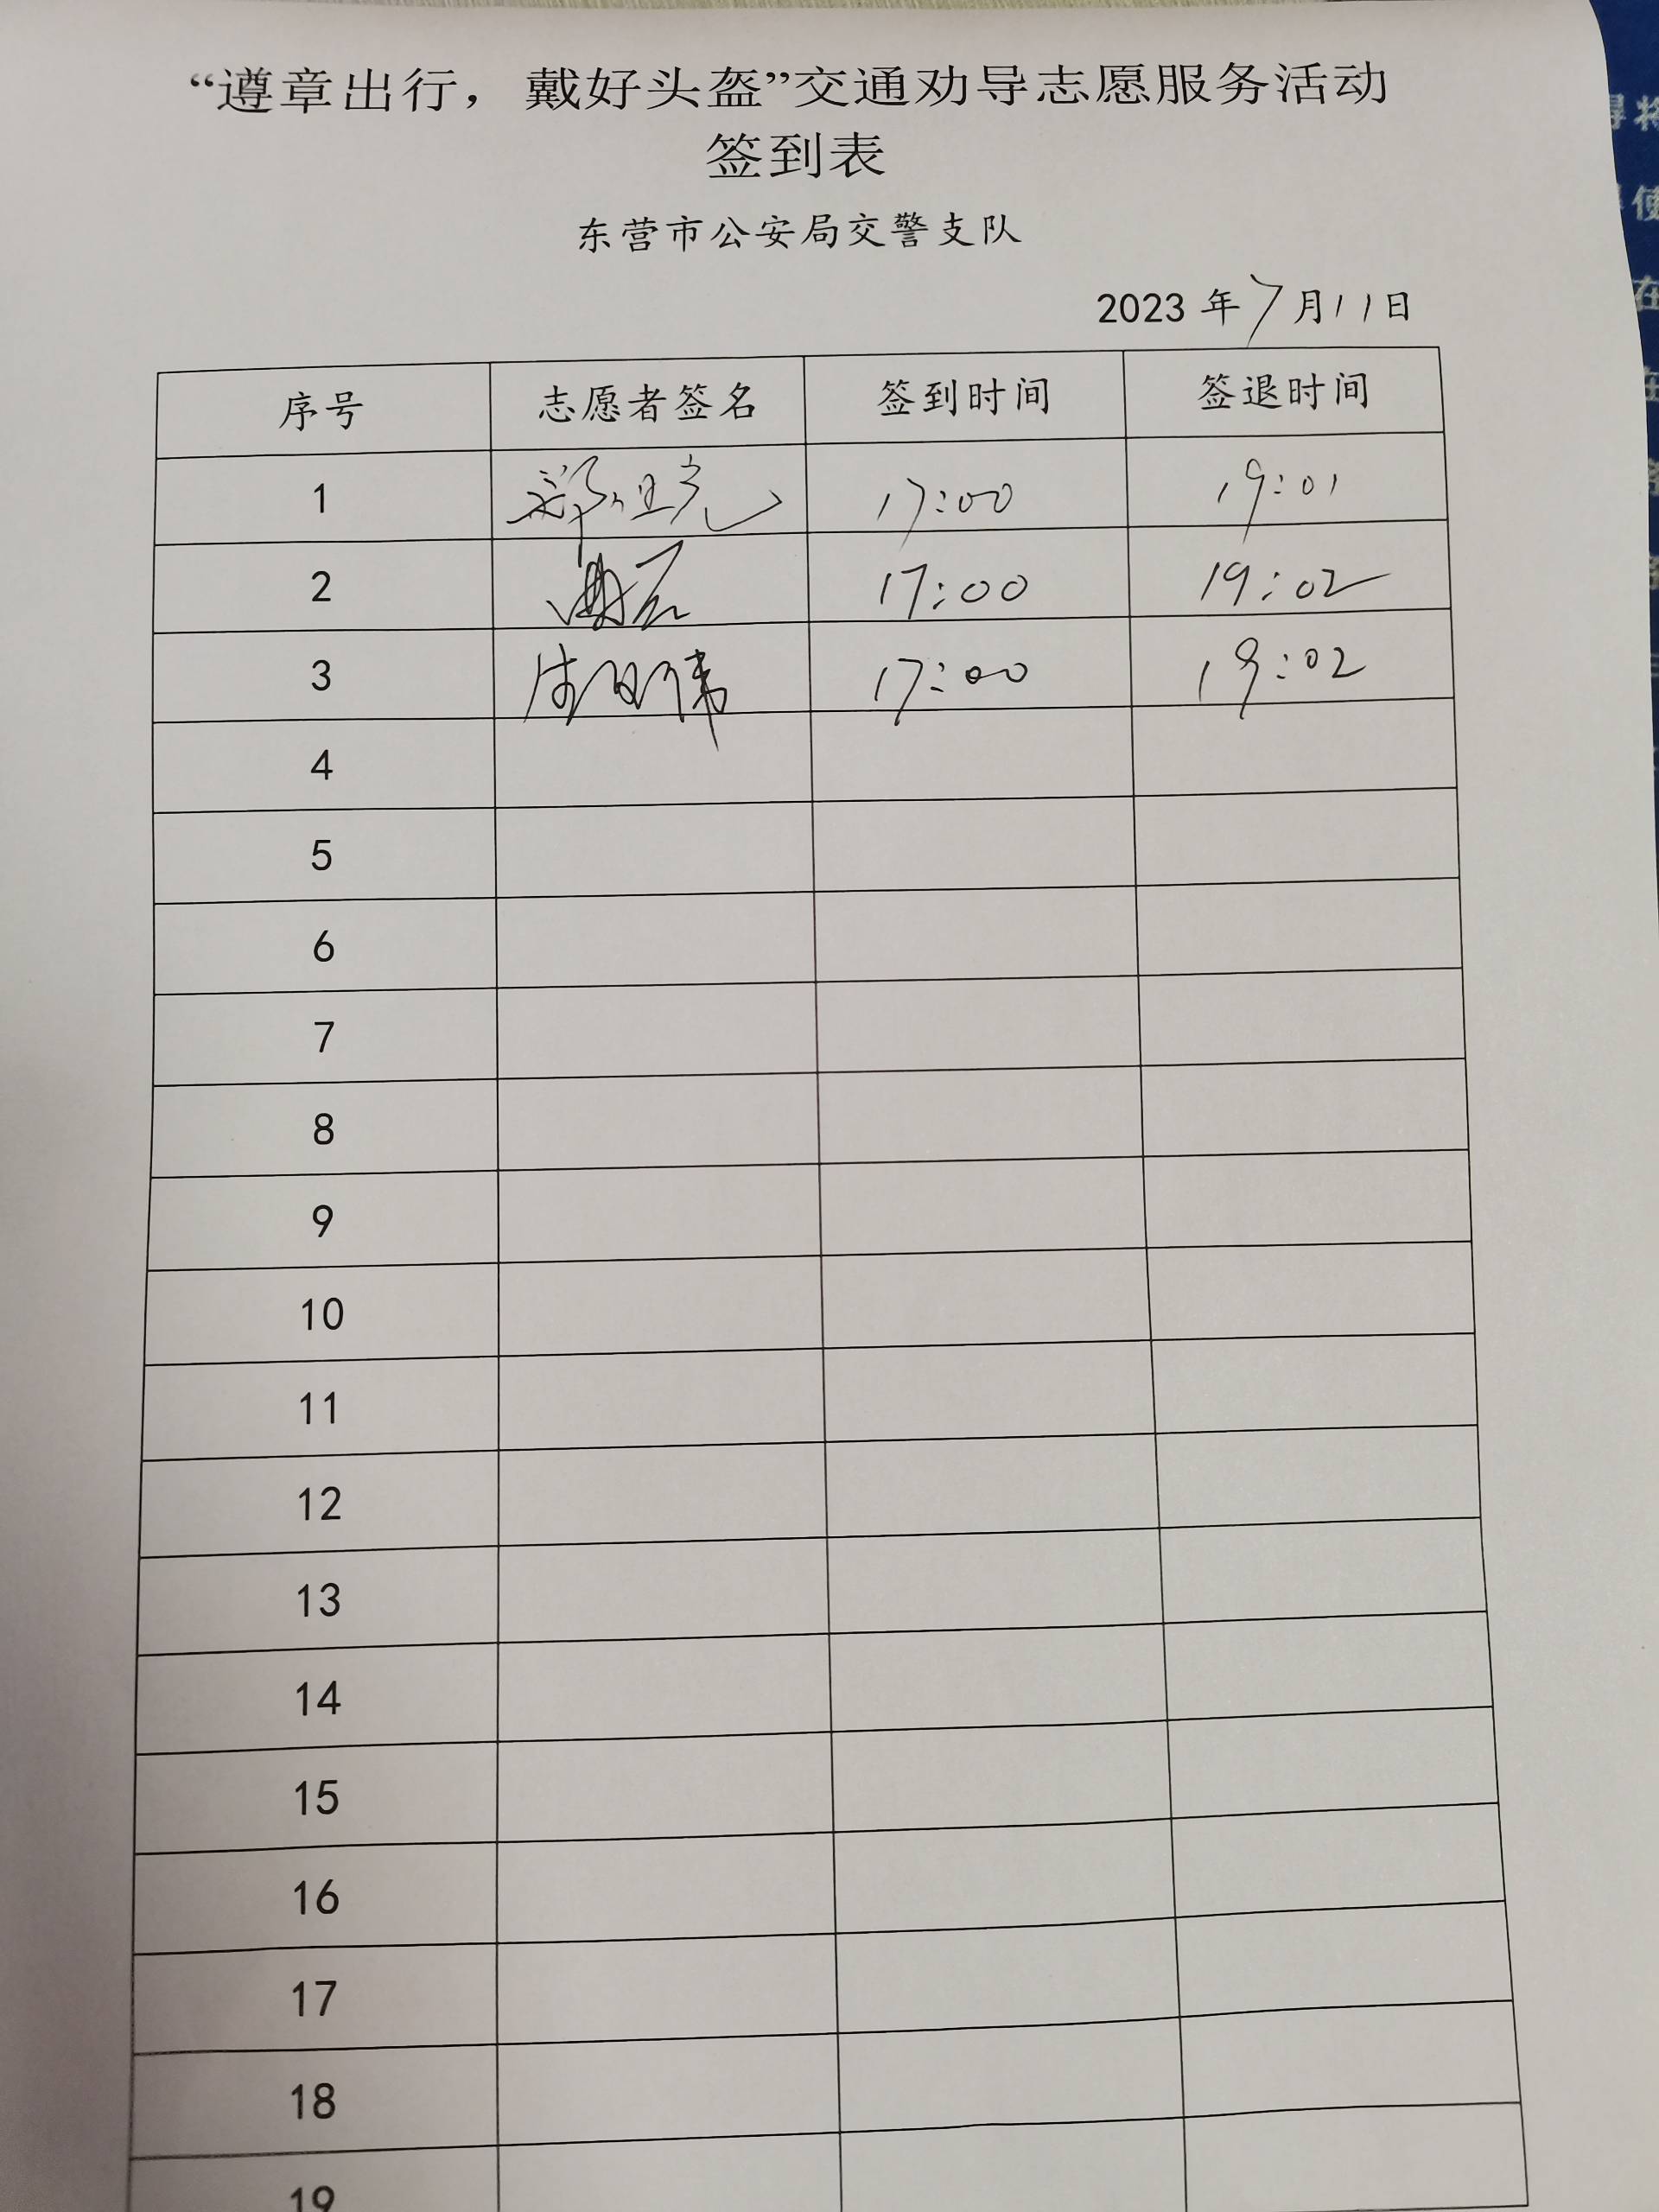 “遵章出行，戴好头盔”交通劝导志愿服务活动
签到表
东营市公安局交警支队
2023 年 7 月 11 日
序号 志愿者签名 签到时间 签退时间
1 17:00 19:01
2 17:00 19:02
3 17:00 19:02
4
5
6
7
8
9
10
11
12
13
14
15
16
17
18
19
将
使
在